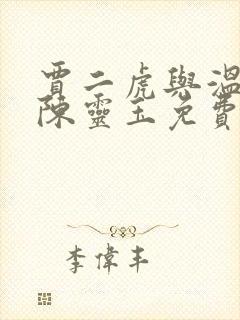 賈二虎與溫
陳靈玉免費
李偉丰